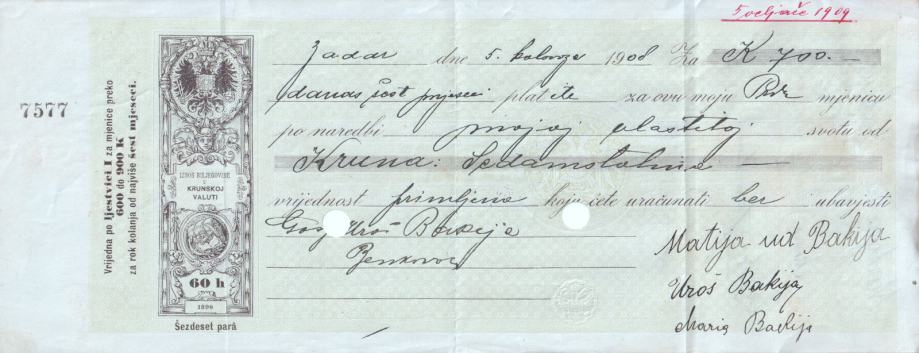 5 veljače 1909
7577
Vrijedna po ljestvici I za mjenice preko
600 do 900 K
za rok kolanja od najviše šest mjeseci.
IZNOS BILJEGOVINE
U
KRUNSKOJ
VALUTI
60 h
1898
Šezdeset parâ
Zadar dne 5. kolovoza 1908 Za K 700.—
danas šest mjeseci platite za ovu moju Prvu mjenicu
po naredbi mojoj vlastitoj svotu od
Kruna: Sedamstotina —
vrijednost primljena koju ćete uračunati bez ubavjesti
Gosp. Uroš Bakija
Benkovac
Matija ud Bakija
Uroš Bakija
Maria Bakija